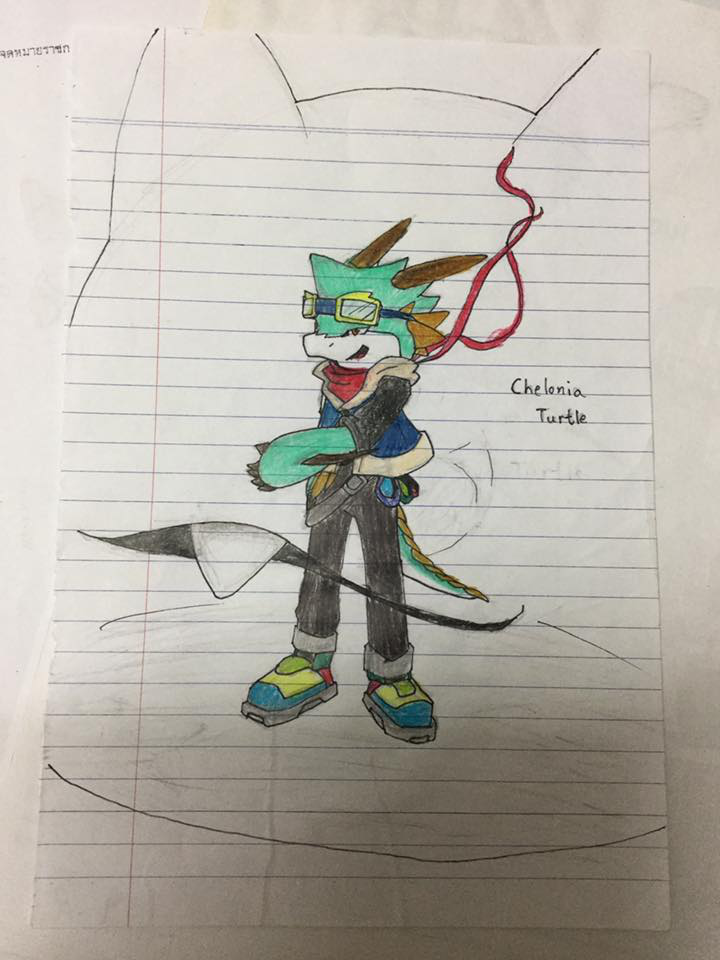 จดหมายราชก
Chelonia
Turtle